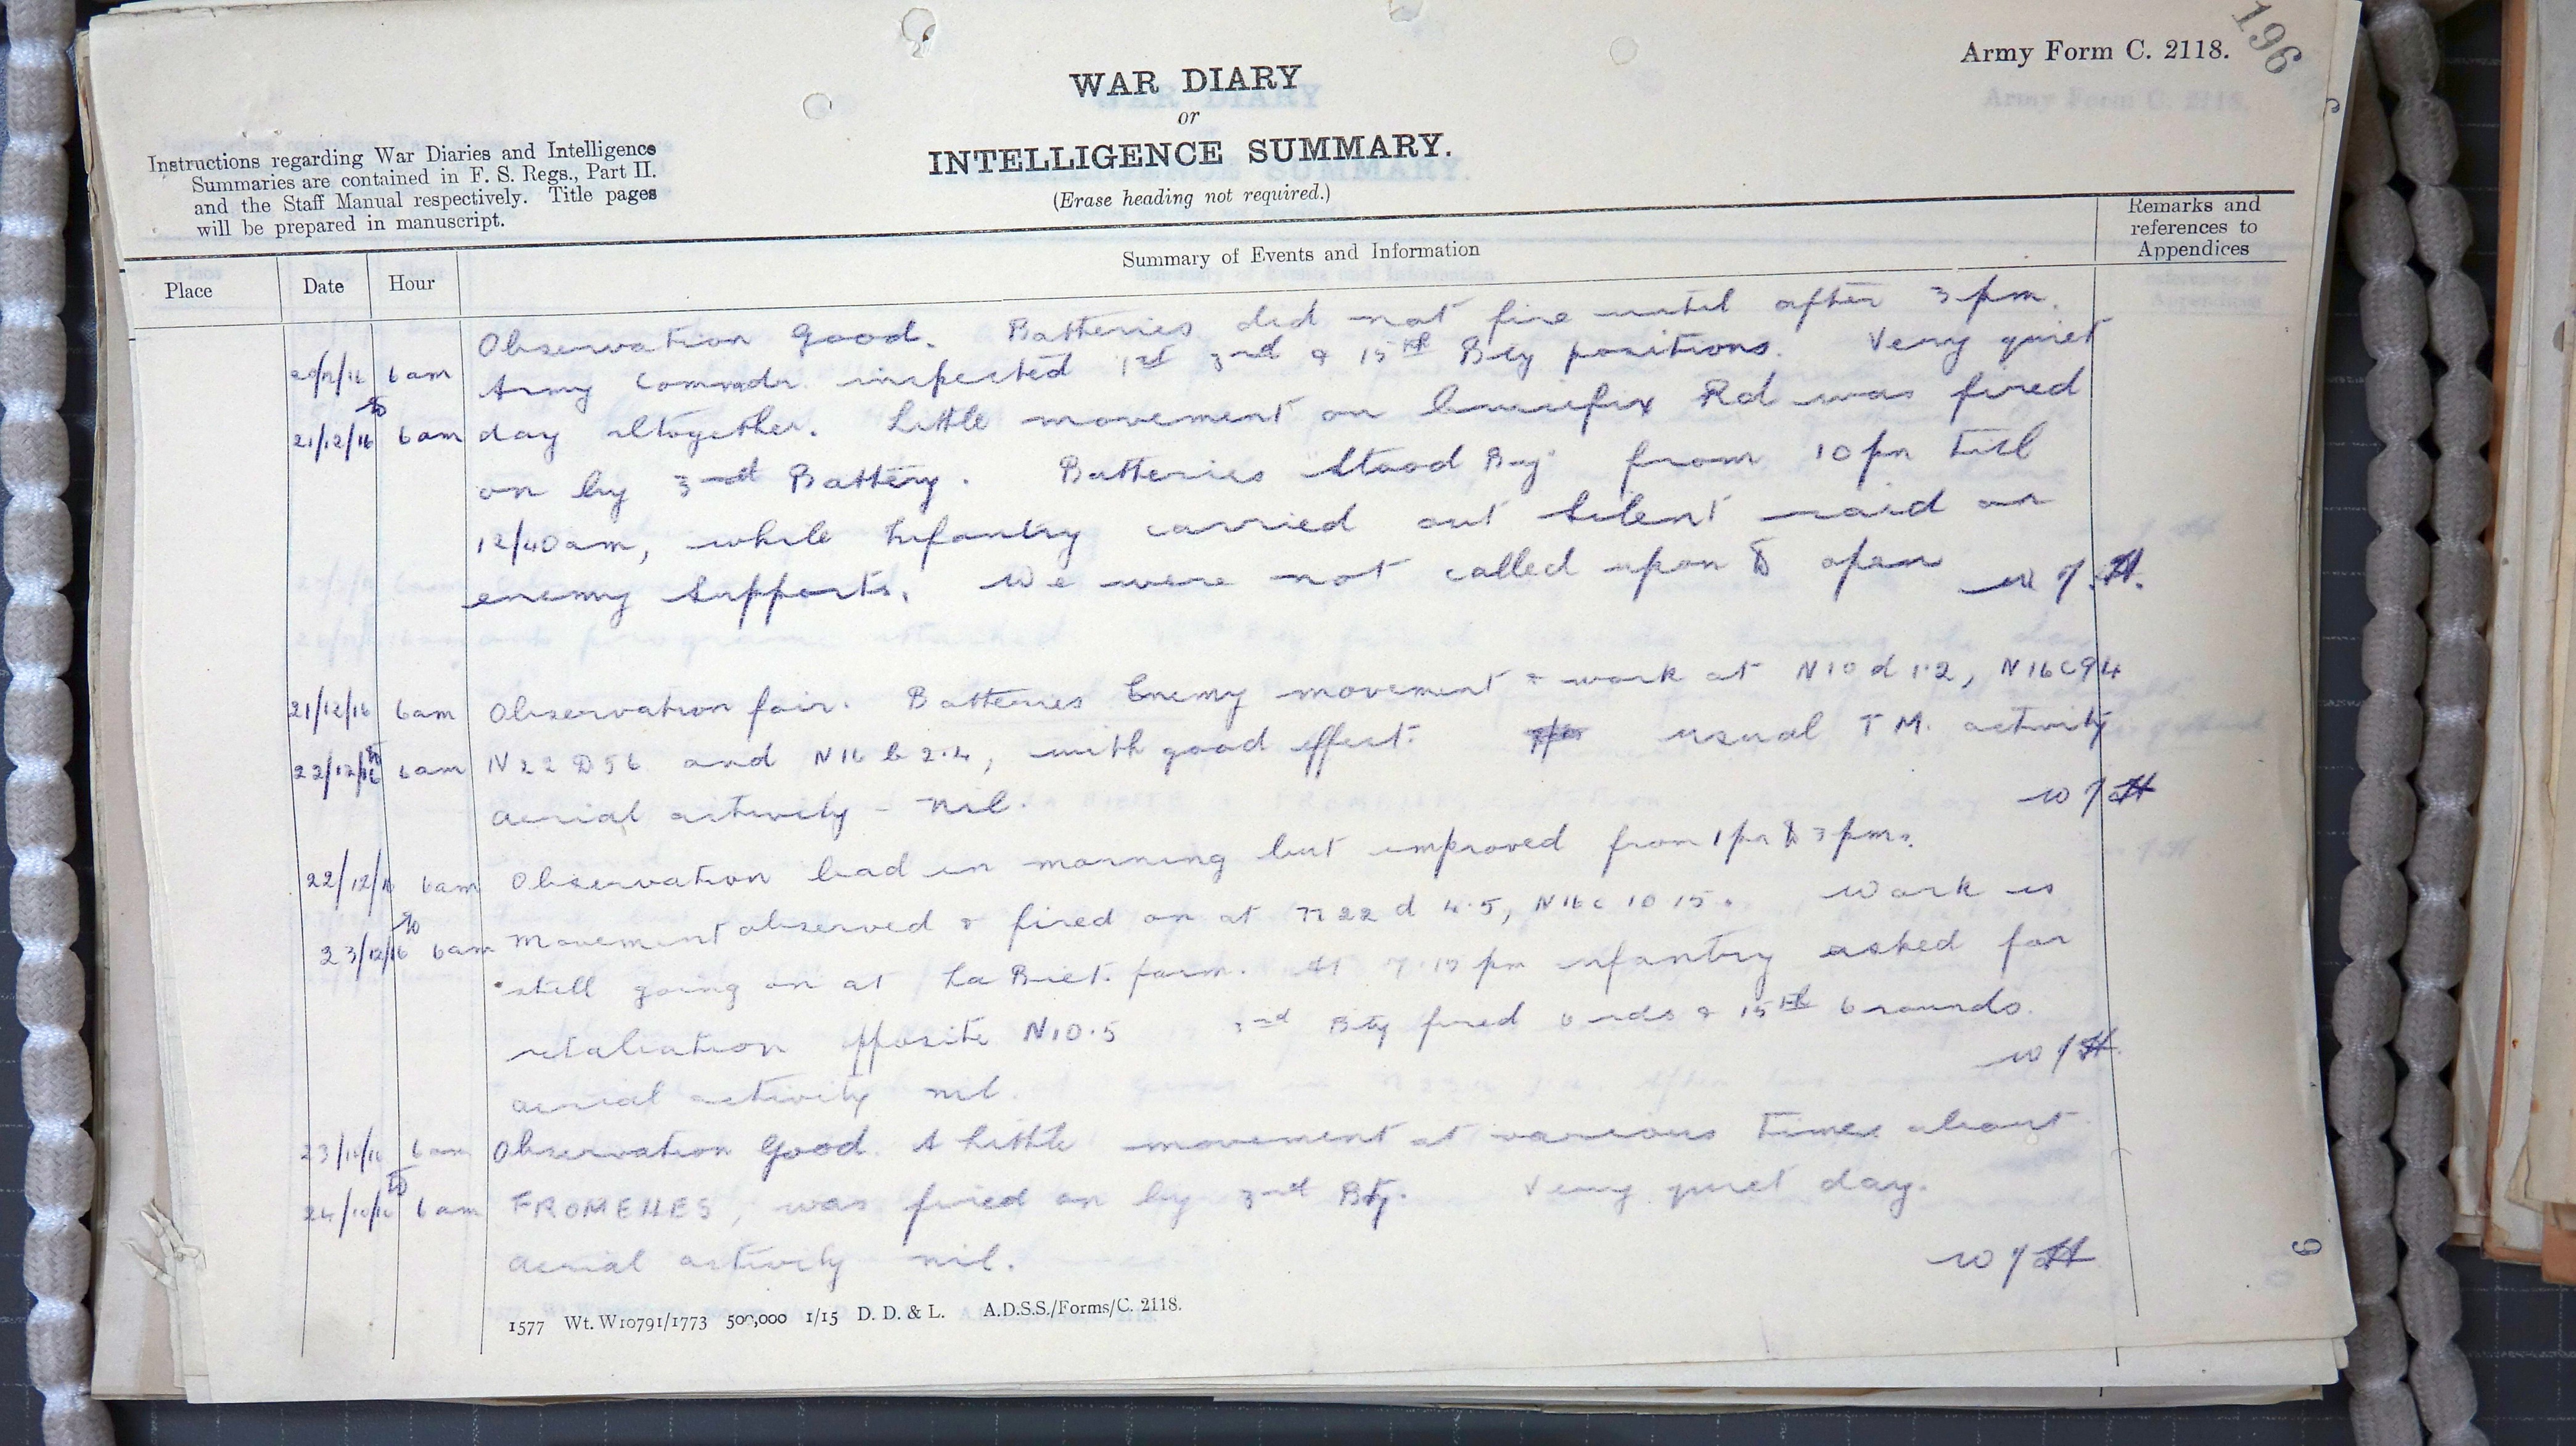 196
Army Form C. 2118.
WAR DIARY
or
INTELLIGENCE SUMMARY.
(Erase heading not required.)
Instructions regarding War Diaries and Intelligence
Summaries are contained in F. S. Regs., Part II.
and the Staff Manual respectively. Title pages
will be prepared in manuscript.
Place Date Hour Summary of Events and Information Remarks and
references to
Appendices
Observation good. Batteries did not fire until after 3 pm.
20/12/16 6am Army Commdr. inspected 1st 3rd & 15th Bty positions. Very quiet
to
21/12/16 6am day altogether. Little movement on Crucifix Rd was fired
on by 3rd Battery. Batteries "Stood By" from 10 pm till
12/40am, while Infantry carried out Silent raid on
enemy Supports. We were not called upon to open
21/12/16 6am Observation fair. Batteries Enemy movement & work at N10 d 1.2, N16C94
to
22/12/16 6am N22 D56 and N16 b 2.4, with good effect. usual T M. activity
aerial activity - nil.
22/12/16 6am Observation bad in morning but improved from 1 pm to 3 pm.
to
23/12/16 6am Movement observed & fired on at N22 d 4.5, N16c 10 15. Work is
still going on at farm. At 7.15 pm infantry asked for
retaliation opposite N10.5 3rd Bty fired rds & 15th 6 rounds.
aerial activity nil.
23/ 6am Observation Good. A little movement at various times about
to
24/ 6am FROMELLES, was fired on by 3rd Bty. Very quiet day.
aerial activity nil.
6
1577 Wt. W10791/1773 500,000 1/15 D. D. & L. A.D.S.S./Forms/C. 2118.